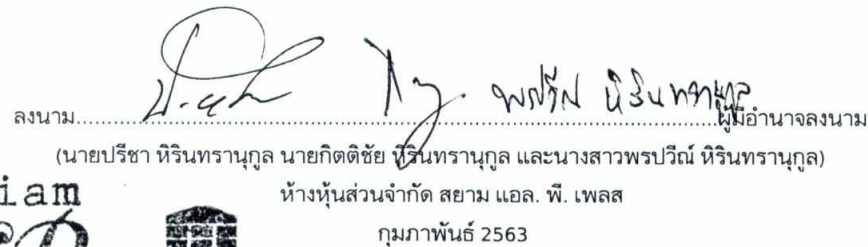 ลงนาม........................................................................................ผู้มีอำนาจลงนาม
พรปวีณ์ หิรินทรานุกูล
(นายปรีชา หิรินทรานุกูล นายกิตติชัย หิรินทรานุกูล และนางสาวพรปวีณ์ หิรินทรานุกูล)
ห้างหุ้นส่วนจำกัด สยาม แอล. พี. เพลส
กุมภาพันธ์ 2563
iam